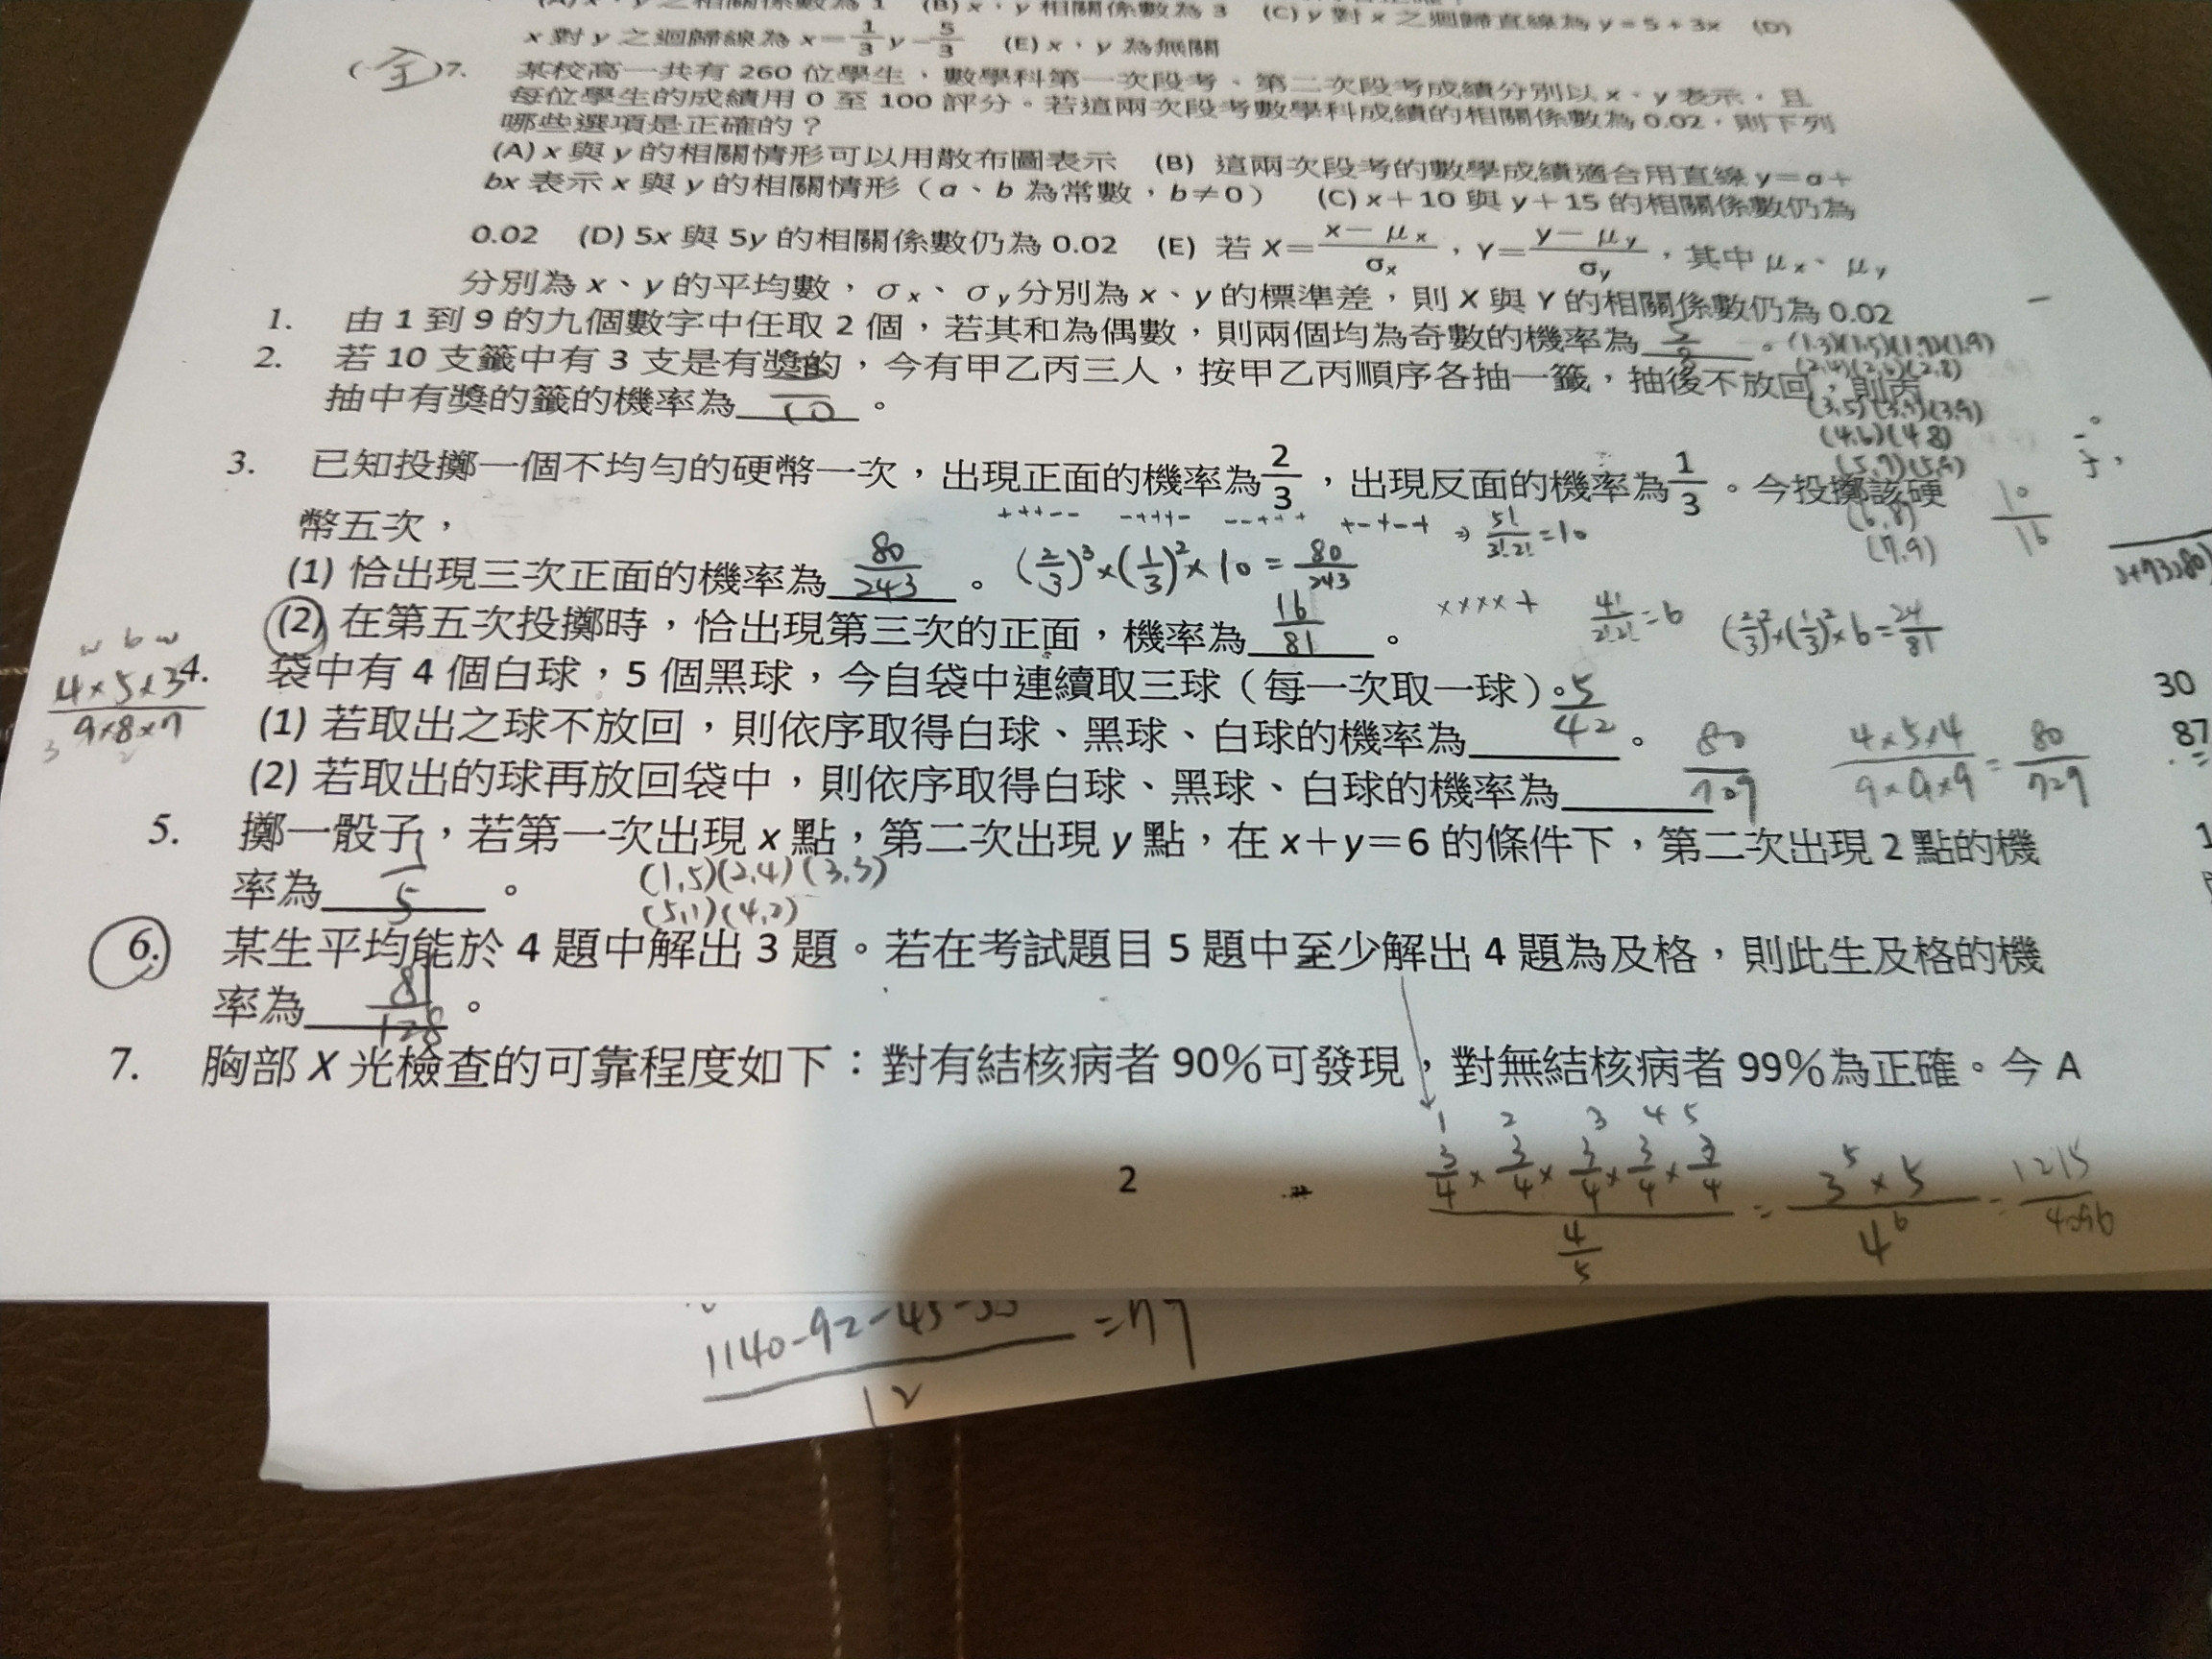 (A) x、y 之相關係數為 1 (B) x、y 相關係數為 3 (C) y 對 x 之迴歸直線為 y=5+3x (D)
x 對 y 之迴歸線為 x=1/3 y-5/3 (E) x、y 為無關
(全)7. 某校高一共有 260 位學生,數學科第一次段考、第二次段考成績分別以 x、y 表示,且
每位學生的成績用 0 至 100 評分。若這兩次段考數學科成績的相關係數為 0.02,則下列
哪些選項是正確的?
(A) x 與 y 的相關情形可以用散布圖表示 (B) 這兩次段考的數學成績適合用直線 y=a+
bx 表示 x 與 y 的相關情形(a、b 為常數,b≠0) (C) x+10 與 y+15 的相關係數仍為
0.02 (D) 5x 與 5y 的相關係數仍為 0.02 (E) 若 X=(x-μx)/σx,Y=(y-μy)/σy,其中 μx、μy
分別為 x、y 的平均數,σx、σy分別為 x、y 的標準差,則 X 與 Y 的相關係數仍為 0.02
1. 由 1 到 9 的九個數字中任取 2 個,若其和為偶數,則兩個均為奇數的機率為 5/8 。 (1,3)(1,5)(1,7)(1,9)
(2,4)(2,6)(2,8)
2. 若 10 支籤中有 3 支是有獎的,今有甲乙丙三人,按甲乙丙順序各抽一籤,抽後不放回,則丙
抽中有獎的籤的機率為 3/10 。 (3,5)(3,7)(3,9)
(4,6)(4,8)
(5,7)(5,9)
(6,8)
(7,9)
10/16
3. 已知投擲一個不均勻的硬幣一次,出現正面的機率為2/3,出現反面的機率為1/3。今投擲該硬
幣五次, +++-- -+++- --+++ +-+-+ ⇒ 5!/3!2!=10
(1) 恰出現三次正面的機率為 80/243 。 (2/3)³×(1/3)²×10=80/243
(2) 在第五次投擲時,恰出現第三次的正面,機率為 16/81 。 ××××+ 4!/2!2!=6 (2/3)²×(1/3)²×6=24/81
w b w
4×5×3/9×8×7
3 2
4. 袋中有 4 個白球,5 個黑球,今自袋中連續取三球(每一次取一球)。
(1) 若取出之球不放回,則依序取得白球、黑球、白球的機率為 5/42 。
(2) 若取出的球再放回袋中,則依序取得白球、黑球、白球的機率為 80/729 4×5×4/9×9×9=80/729
30
87
5. 擲一骰子,若第一次出現 x 點,第二次出現 y 點,在 x+y=6 的條件下,第二次出現 2 點的機
率為 1/5 。 (1,5)(2,4)(3,3)
(5,1)(4,2)
6. 某生平均能於 4 題中解出 3 題。若在考試題目 5 題中至少解出 4 題為及格,則此生及格的機
率為 81/128 。
7. 胸部 X 光檢查的可靠程度如下:對有結核病者 90%可發現,對無結核病者 99%為正確。今 A
1 2 3 4 5
3/4×3/4×3/4×3/4×3/4 / 4/5 = 3⁵×5/4⁶ = 1215/4096
2
1140-92-45- /12 =77